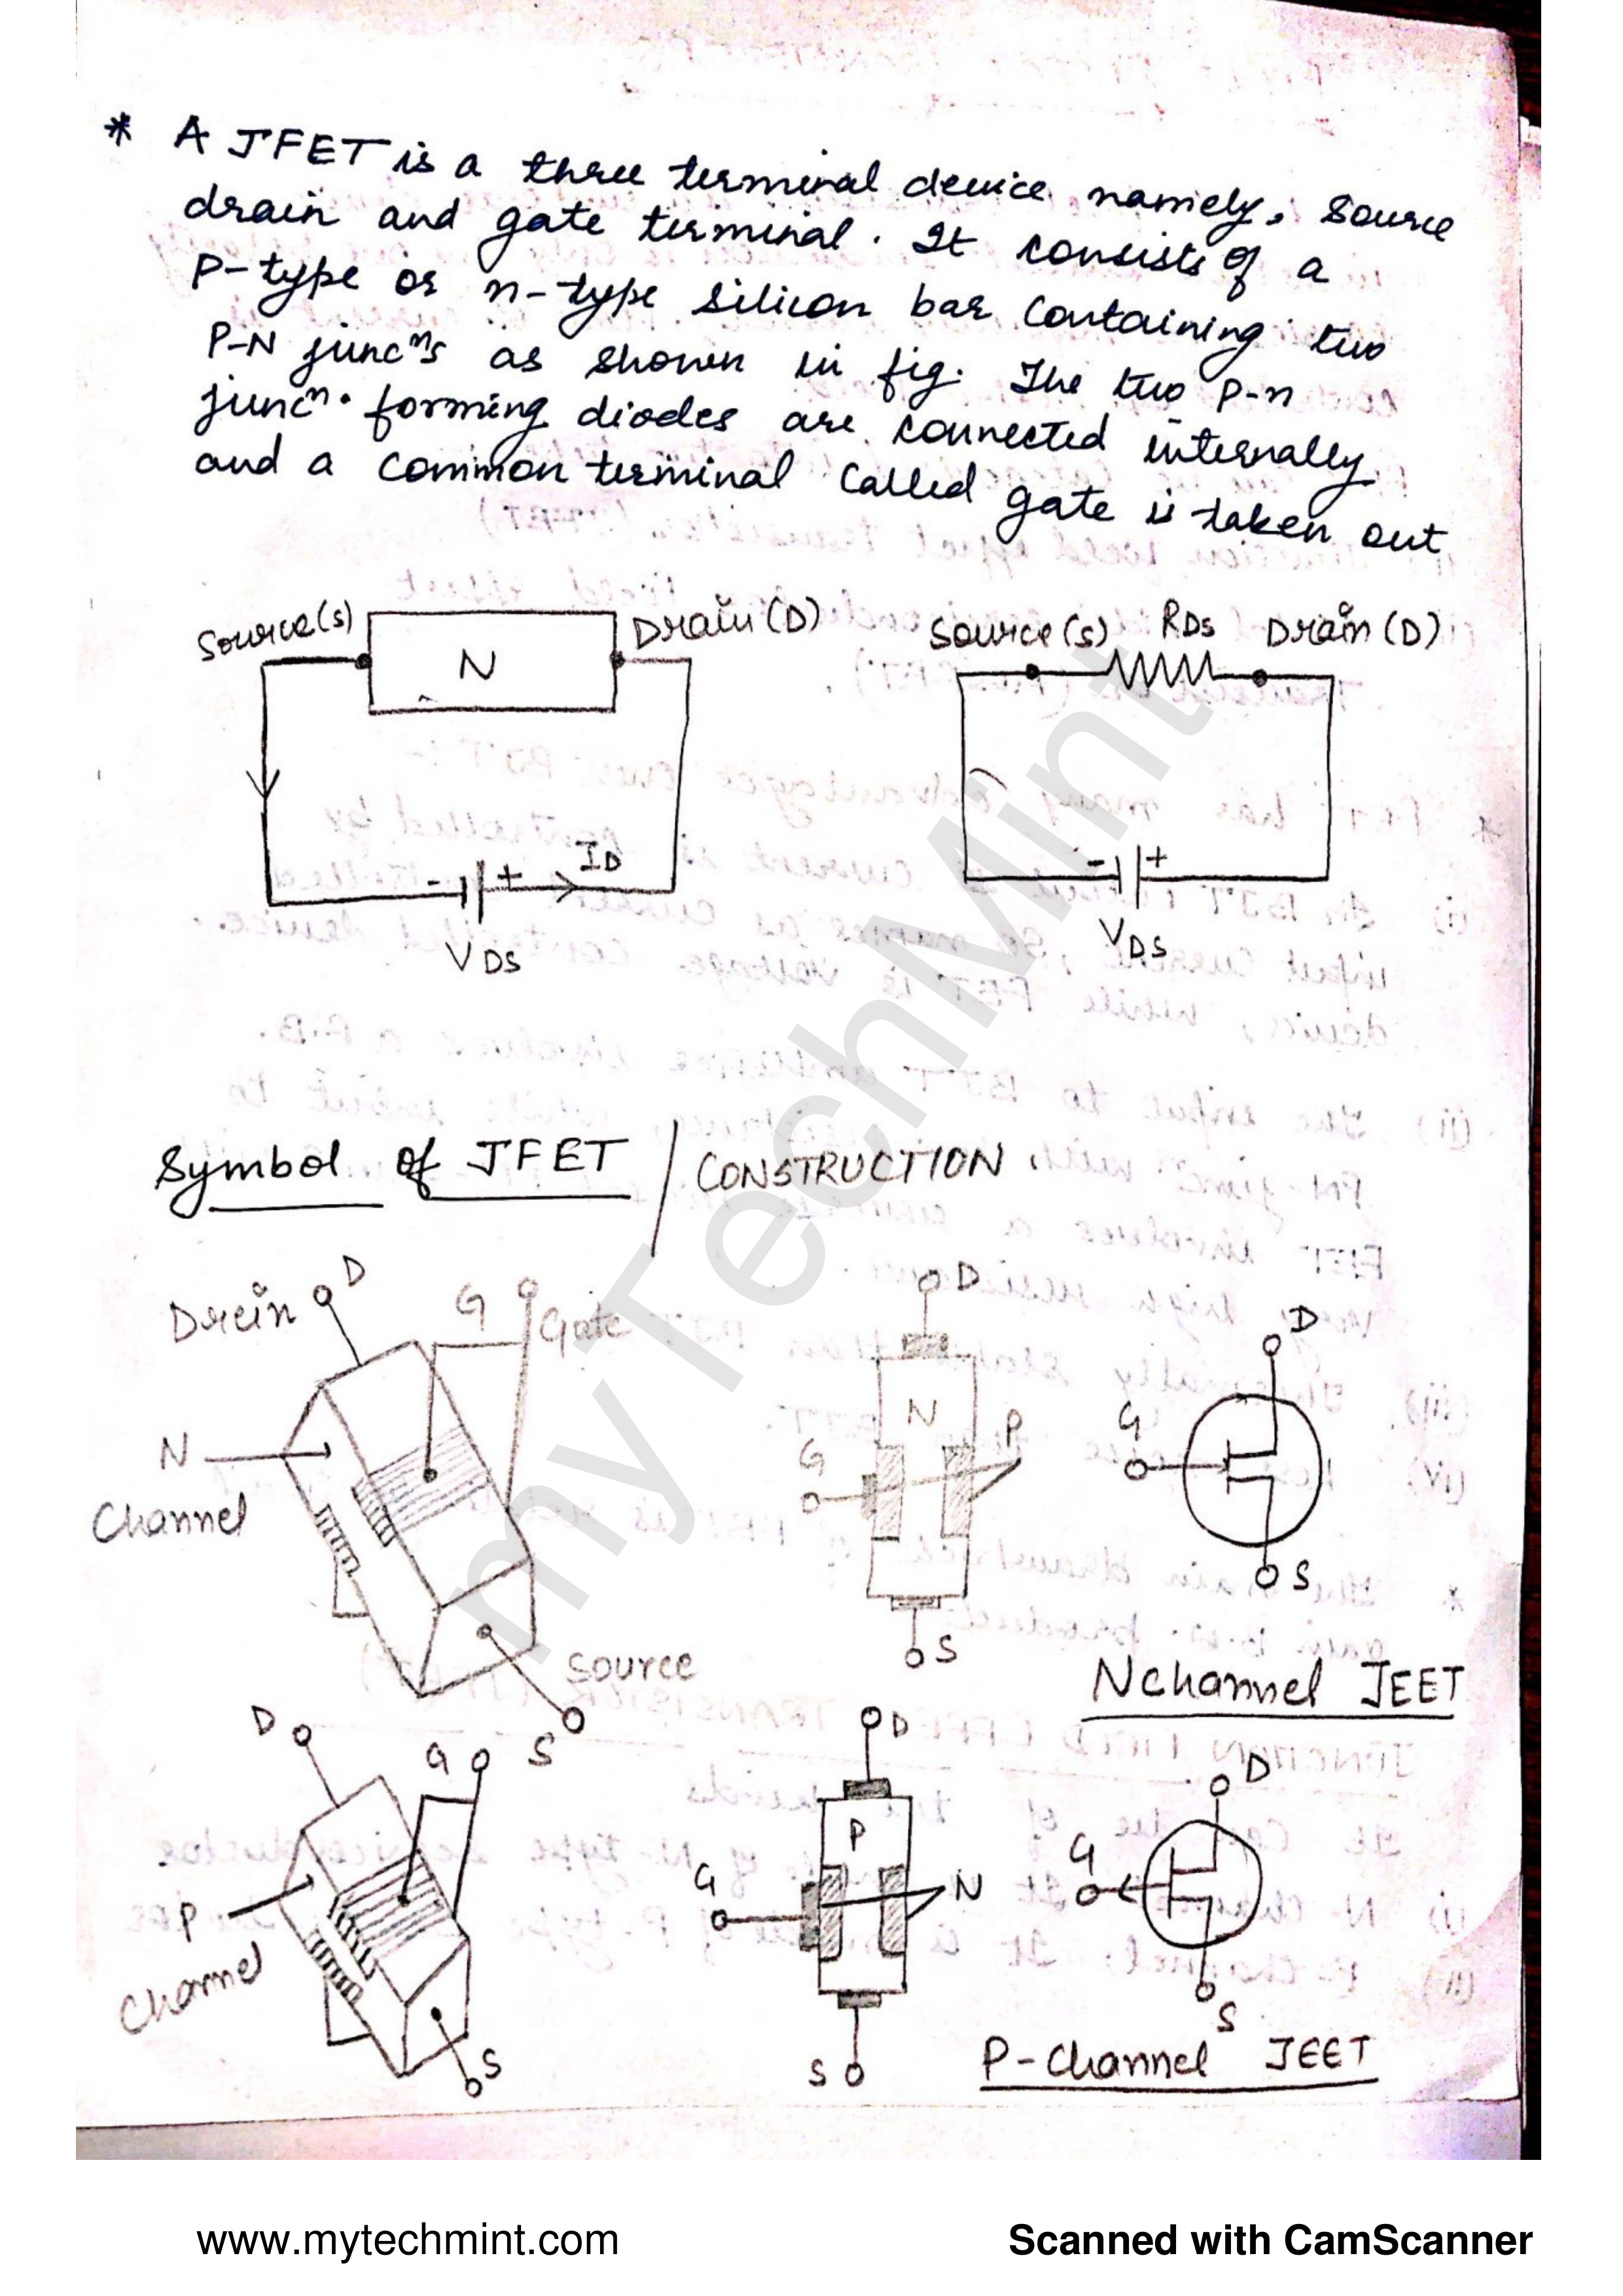 * A JFET is a three terminal device namely, Source
drain and gate terminal. It consists of a
P-type or n-type silicon bar containing two
P-N juncⁿs as shown in fig. The two p-n
juncⁿ. forming diodes are connected internally
and a common terminal called gate is taken out
Source(s) N Drain(D)
- + ID
VDS
Source(s) RDS Drain(D)
- +
VDS
Symbol of JFET / CONSTRUCTION
Drein D G Gate
N
Channel
Source
S
D
N P
G
S
D
G
S
N channel JEET
D G
P
Channel
S
D
P
G N
S
D
G
S
P-Channel JEET
myTechMint
www.mytechmint.com
Scanned with CamScanner